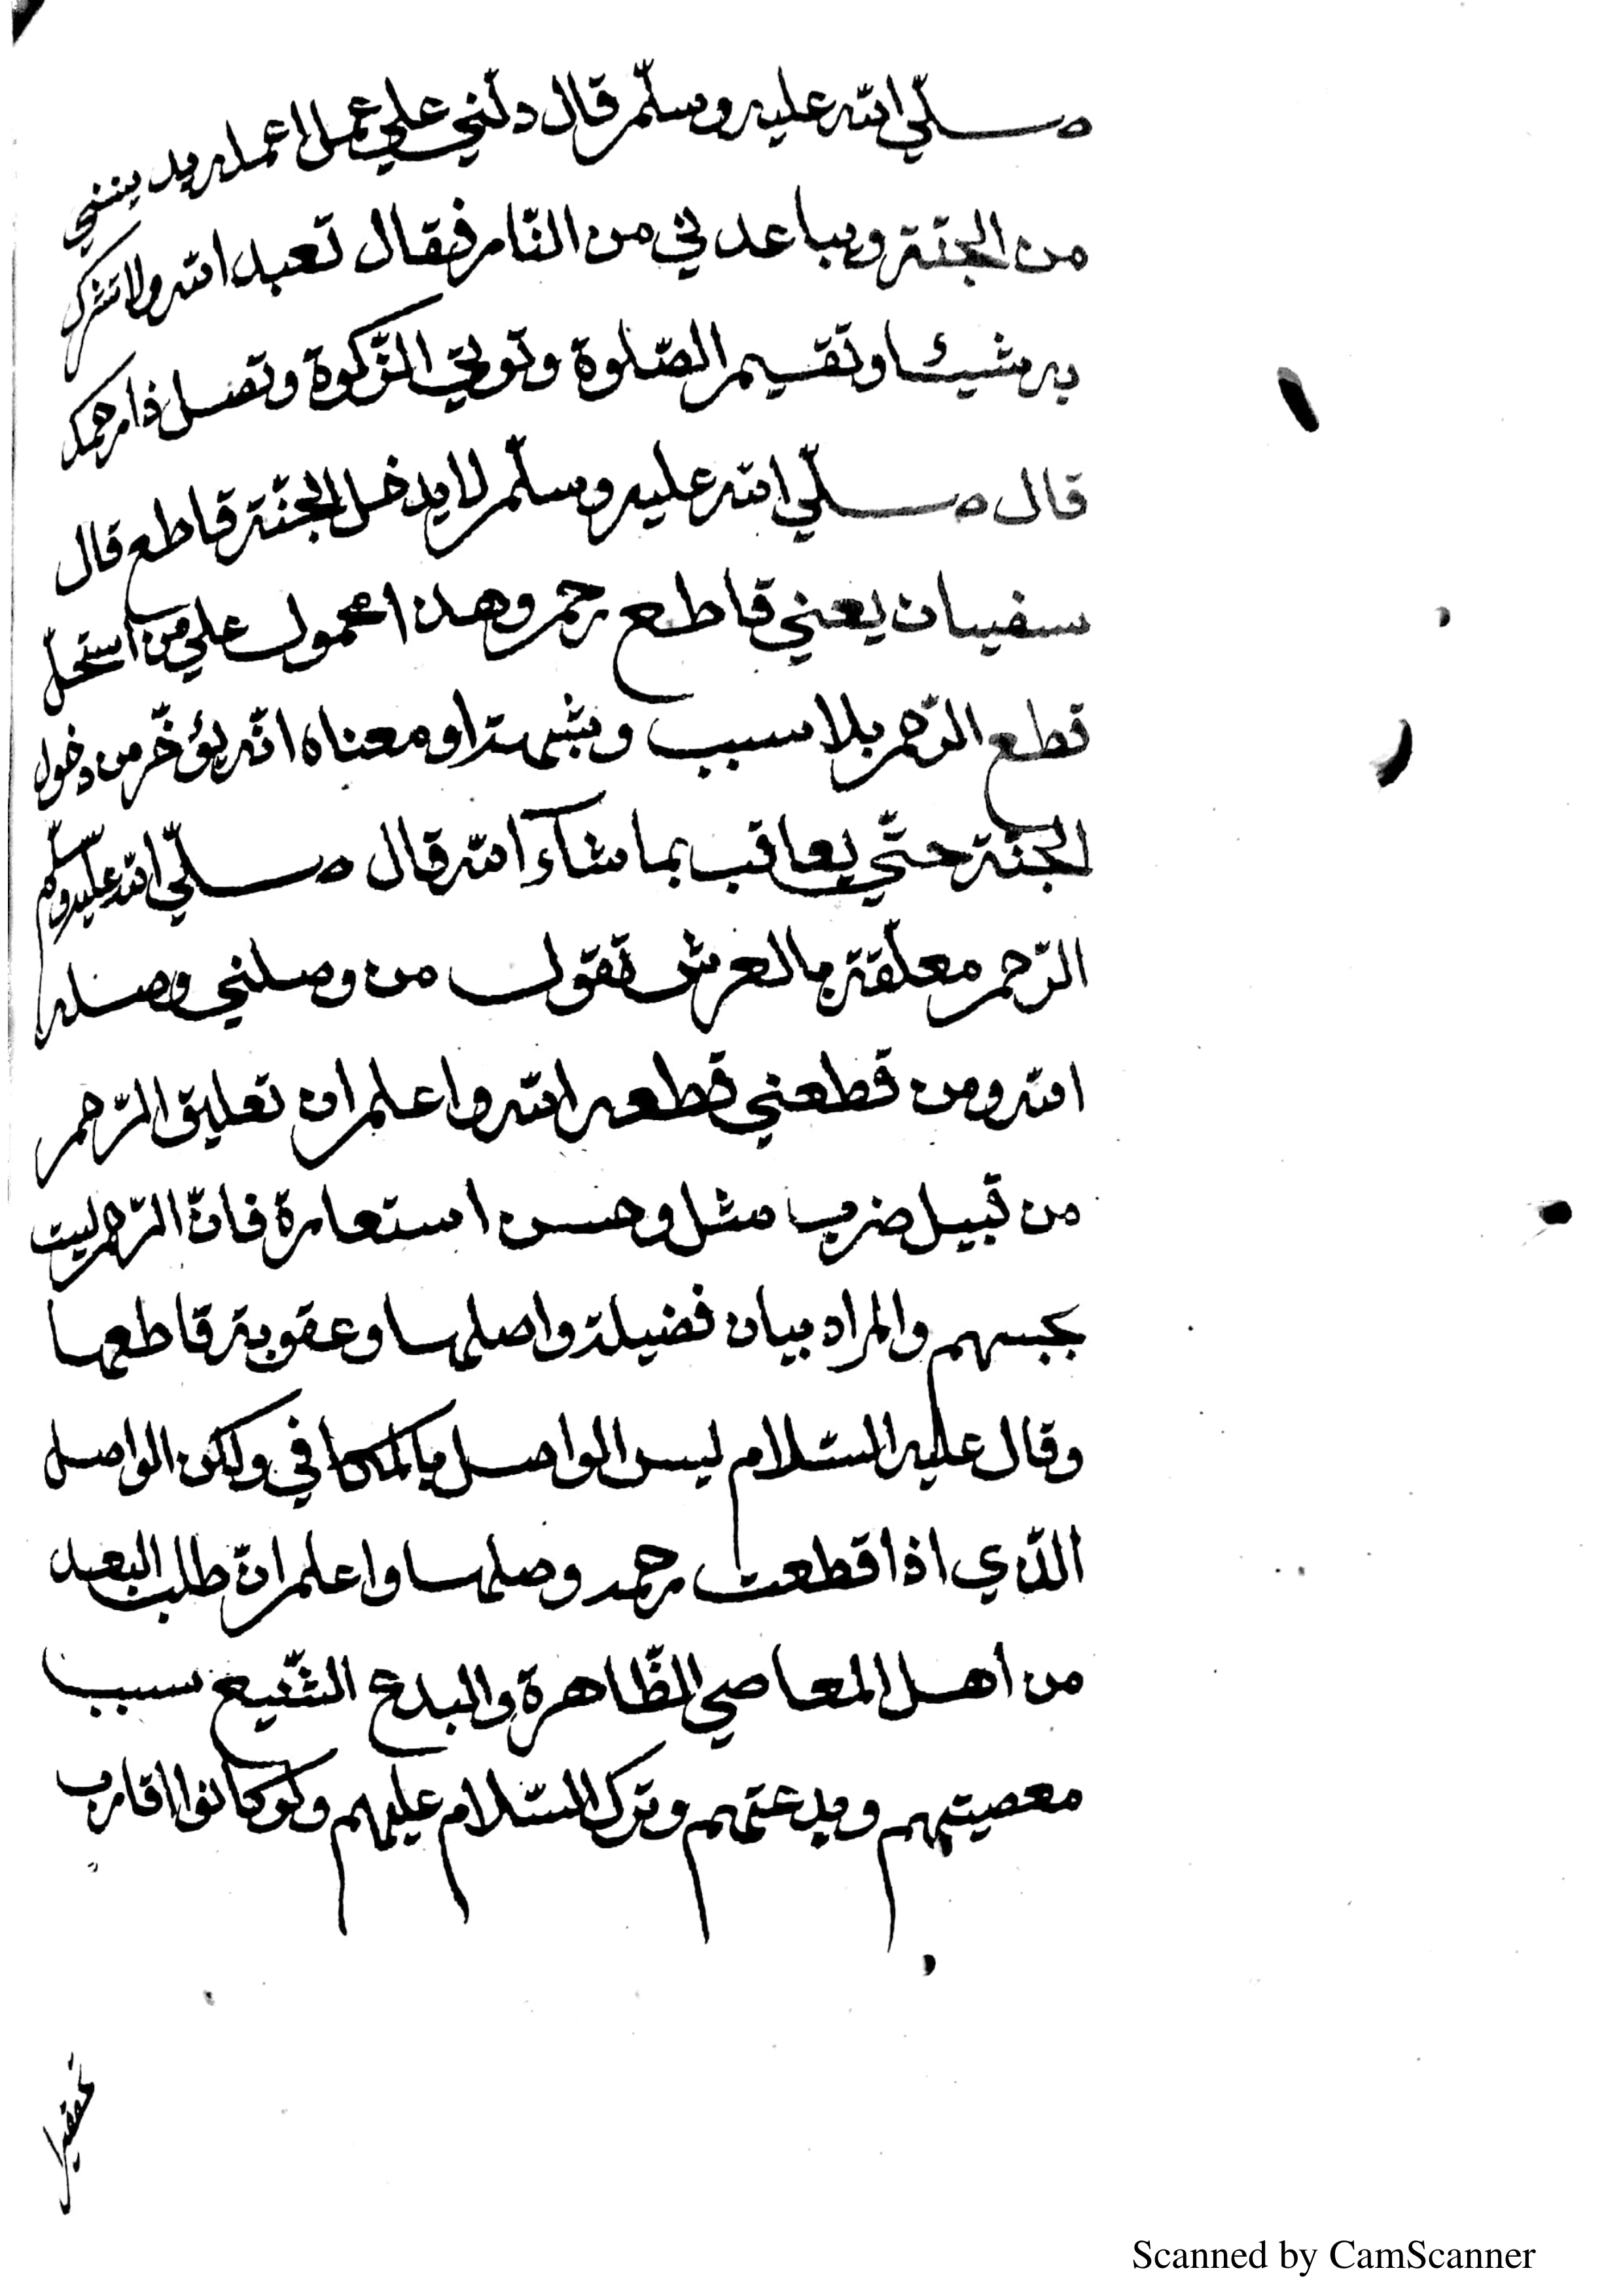 صلّي الله عليه وسلّم قال دلّني علي عمل اعمله يدنيني
من الجنّة ويباعدني من النّار فقال تعبد الله ولا تشرك
به شيئا وتقيم الصّلوة وتوتي الزّكوة وتصل ذا رحمك
قال صلّي الله عليه وسلّم لا يدخل الجنّة قاطع قال
سفيان يعني قاطع رحم وهذا محمول علي من استحلّ
قطع الرّحم بلا سبب وشبهة او معناه انّه يؤخّر من دخول
الجنّة حتّي يعاقب بما شآء الله قال صلّي الله عليه وسلّم
الرّحم معلّقة بالعرش تقول من وصلني وصله
الله ومن قطعني قطعه الله واعلم ان تعليق الرّحم
من قبيل ضرب مثل وحسن استعارة فانّ الرّحم ليست
بجسم والمراد بيان فضيلة واصلها وعقوبة قاطعها
وقال عليه السّلام ليس الواصل بالمكافي ولكن الواصل
الّذي اذا قطعت رحمه وصلها واعلم انّ طلب البعد
من اهل المعاصي الظّاهرة والبدع الشّنيع سبب
معصيتهم وبدعتهم وترك السّلام عليهم ولو كانوا اقارب
Scanned by CamScanner